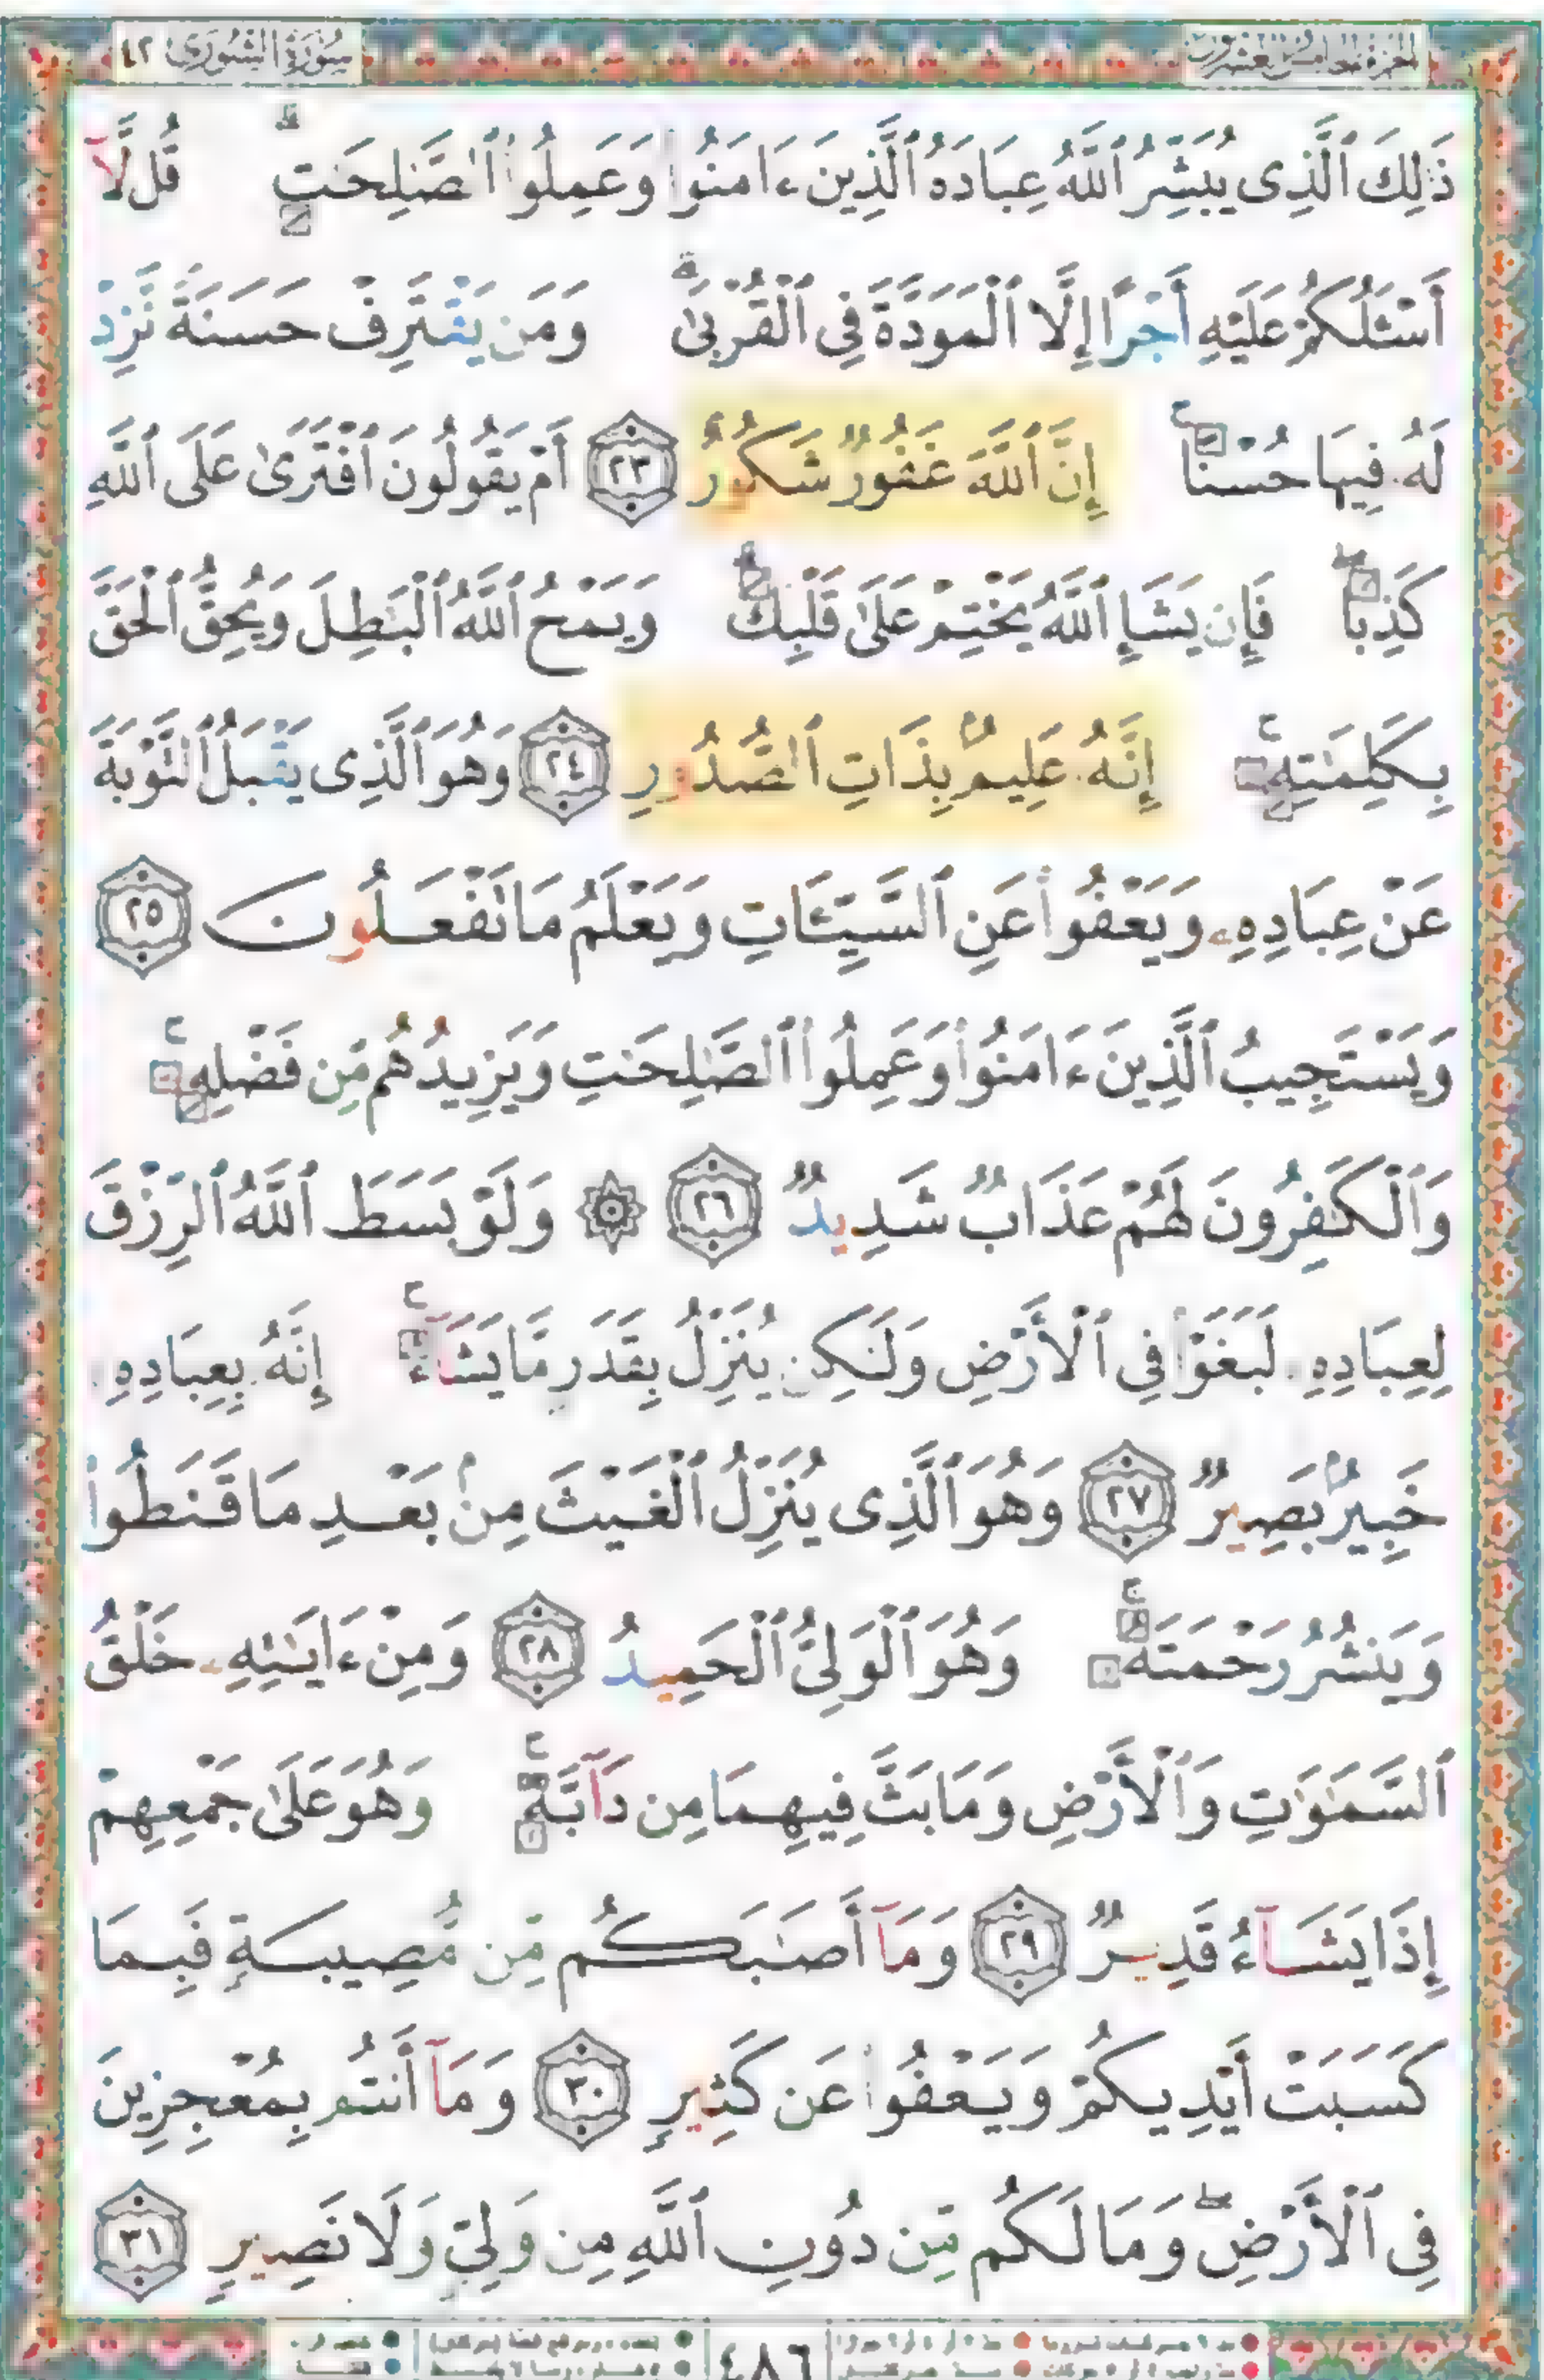 سُورَةُ الشُّورَىٰ ٤٢
ذَٰلِكَ ٱلَّذِى يُبَشِّرُ ٱللَّهُ عِبَادَهُ ٱلَّذِينَ ءَامَنُوا۟ وَعَمِلُوا۟ ٱلصَّٰلِحَٰتِ ۗ قُل لَّآ
أَسْـَٔلُكُمْ عَلَيْهِ أَجْرًا إِلَّا ٱلْمَوَدَّةَ فِى ٱلْقُرْبَىٰ ۗ وَمَن يَقْتَرِفْ حَسَنَةً نَّزِدْ
لَهُۥ فِيهَا حُسْنًا ۚ إِنَّ ٱللَّهَ غَفُورٌ شَكُورٌ ٢٣ أَمْ يَقُولُونَ ٱفْتَرَىٰ عَلَى ٱللَّهِ
كَذِبًا ۖ فَإِن يَشَإِ ٱللَّهُ يَخْتِمْ عَلَىٰ قَلْبِكَ ۗ وَيَمْحُ ٱللَّهُ ٱلْبَٰطِلَ وَيُحِقُّ ٱلْحَقَّ
بِكَلِمَٰتِهِۦٓ ۚ إِنَّهُۥ عَلِيمٌۢ بِذَاتِ ٱلصُّدُورِ ٢٤ وَهُوَ ٱلَّذِى يَقْبَلُ ٱلتَّوْبَةَ
عَنْ عِبَادِهِۦ وَيَعْفُوا۟ عَنِ ٱلسَّيِّـَٔاتِ وَيَعْلَمُ مَا تَفْعَلُونَ ٢٥
وَيَسْتَجِيبُ ٱلَّذِينَ ءَامَنُوا۟ وَعَمِلُوا۟ ٱلصَّٰلِحَٰتِ وَيَزِيدُهُم مِّن فَضْلِهِۦ ۚ
وَٱلْكَٰفِرُونَ لَهُمْ عَذَابٌ شَدِيدٌ ٢٦ ۞ وَلَوْ بَسَطَ ٱللَّهُ ٱلرِّزْقَ
لِعِبَادِهِۦ لَبَغَوْا۟ فِى ٱلْأَرْضِ وَلَٰكِن يُنَزِّلُ بِقَدَرٍ مَّا يَشَآءُ ۚ إِنَّهُۥ بِعِبَادِهِۦ
خَبِيرٌۢ بَصِيرٌ ٢٧ وَهُوَ ٱلَّذِى يُنَزِّلُ ٱلْغَيْثَ مِنۢ بَعْدِ مَا قَنَطُوا۟
وَيَنشُرُ رَحْمَتَهُۥ ۚ وَهُوَ ٱلْوَلِىُّ ٱلْحَمِيدُ ٢٨ وَمِنْ ءَايَٰتِهِۦ خَلْقُ
ٱلسَّمَٰوَٰتِ وَٱلْأَرْضِ وَمَا بَثَّ فِيهِمَا مِن دَآبَّةٍ ۚ وَهُوَ عَلَىٰ جَمْعِهِمْ
إِذَا يَشَآءُ قَدِيرٌ ٢٩ وَمَآ أَصَٰبَكُم مِّن مُّصِيبَةٍ فَبِمَا
كَسَبَتْ أَيْدِيكُمْ وَيَعْفُوا۟ عَن كَثِيرٍ ٣٠ وَمَآ أَنتُم بِمُعْجِزِينَ
فِى ٱلْأَرْضِ ۖ وَمَا لَكُم مِّن دُونِ ٱللَّهِ مِن وَلِىٍّ وَلَا نَصِيرٍ ٣١
٤٨٦